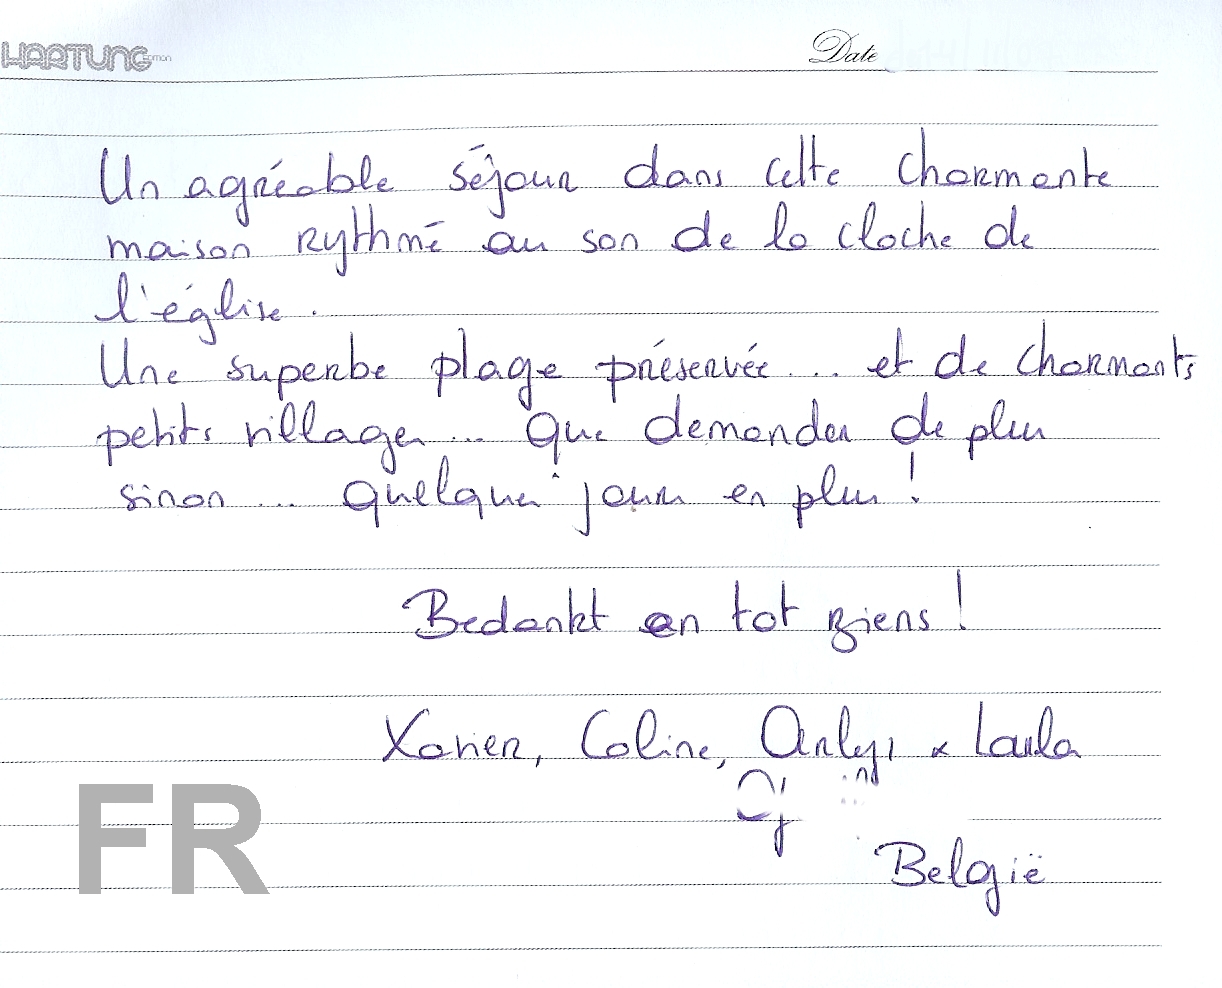 HARTUNG Edition
Date
Un agréable séjour dans cette charmante
maison rythmé au son de la cloche de
l'église.
Une superbe plage préservée ... et de charmants
petits villages ... Que demander de plus
sinon ... quelques jours en plus !
Bedankt en tot ziens !
Xavier, Coline, &
België
FR